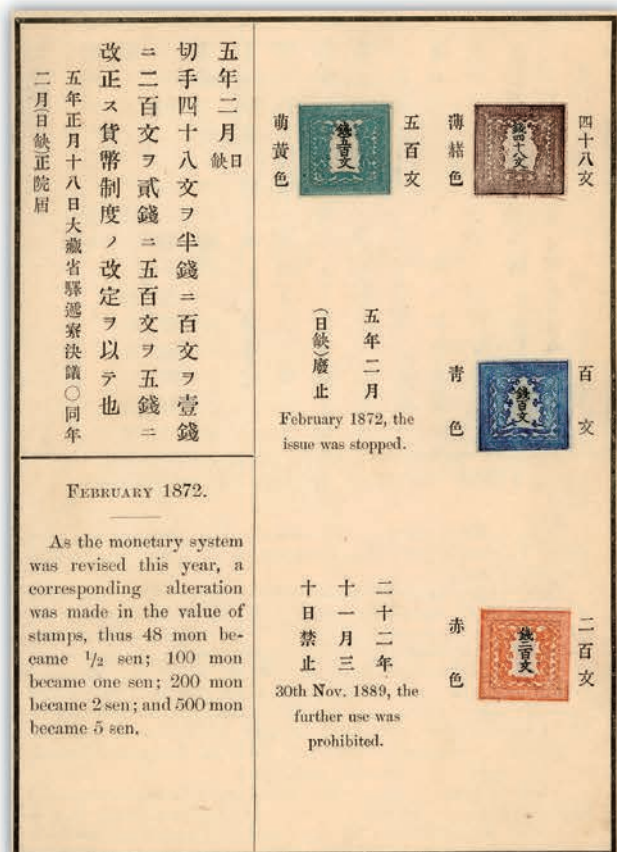 五年二月日缺
切手四十八文ヲ半錢ニ百文ヲ壹錢
ニ二百文ヲ貳錢ニ五百文ヲ五錢ニ
改正ス貨幣制度ノ改定ヲ以テ也
五年正月十八日大藏省驛遞寮決議〇同年
二月(日缺)正院屆
FEBRUARY 1872.
As the monetary system
was revised this year, a
corresponding alteration
was made in the value of
stamps, thus 48 mon be-
came 1/2 sen; 100 mon
became one sen; 200 mon
became 2 sen; and 500 mon
became 5 sen.
四十八文
錢四十八文
薄赭色
五百文
錢五百文
萌黃色
百文
錢百文
靑色
五年二月
(日缺)廢止
February 1872, the
issue was stopped.
二百文
錢二百文
赤色
二十二年
十一月三
十日禁止
30th Nov. 1889, the
further use was
prohibited.